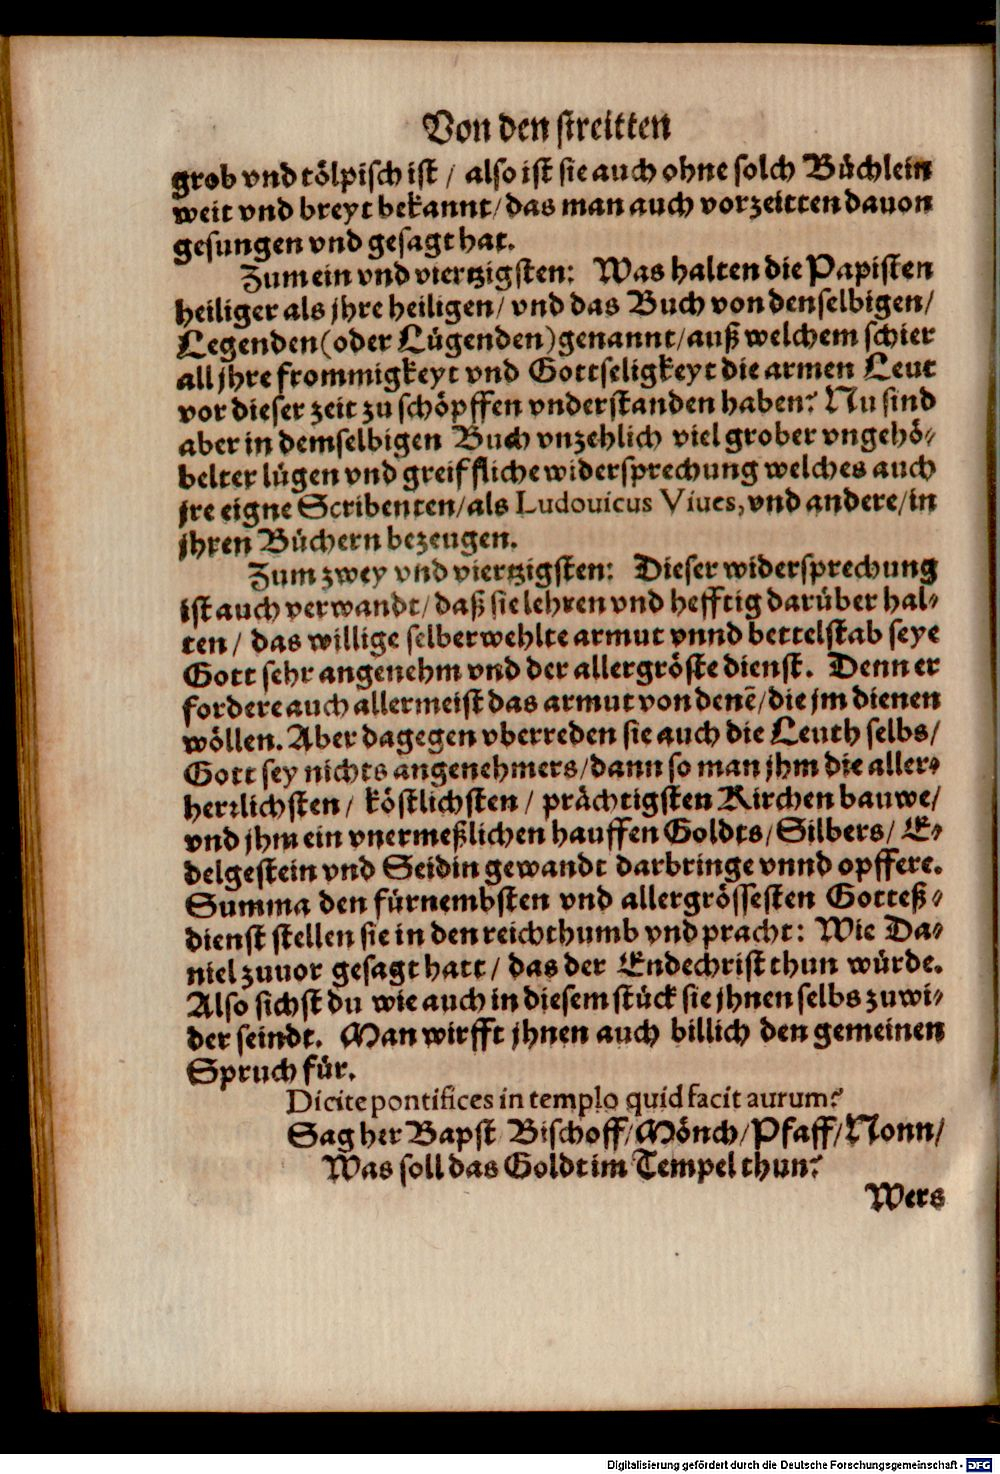 Von den streitten
grob vnd tölpisch ist / also ist sie auch ohne solch Büchlein
weit vnd breyt bekannt/ das man auch vorzeitten dauon
gesungen vnd gesagt hat.
Zum ein vnd viertzigsten: Was halten die Papisten
heiliger als jhre heiligen/ vnd das Buch von denselbigen/
Legenden (oder Lügenden) genannt/ auß welchem schier
all jhre frommigkeyt vnd Gottseligkeyt die armen Leut
vor dieser zeit zu schöpffen vnderstanden haben? Nu sind
aber in demselbigen Buch vnzehlich viel grober vngehö-
belter lügen vnd greiffliche widersprechung welches auch
jre eigne Scribenten/ als Ludouicus Viues, vnd andere/ in
jhren Büchern bezeugen.
Zum zwey vnd viertzigsten: Dieser widersprechung
ist auch verwandt/ daß sie lehren vnd hefftig darüber hal-
ten/ das willige selberwehlte armut vnnd bettelstab seye
Gott sehr angenehm vnd der allergröste dienst. Denn er
fordere auch allermeist das armut von denē/ die jm dienen
wöllen. Aber dagegen vberreden sie auch die Leuth selbs/
Gott sey nichts angenehmers/ dann so man jhm die aller-
herrlichsten/ köstlichsten/ prächtigsten Kirchen bauwe/
vnd jhm ein vnermeßlichen hauffen Goldts/ Silbers/ E-
delgestein vnd Seidin gewandt darbringe vnnd opffere.
Summa den fürnembsten vnd allergrössesten Gotteß-
dienst stellen sie in den reichthumb vnd pracht: Wie Da-
niel zuuor gesagt hatt/ das der Endechrist thun würde.
Also sichst du wie auch in diesem stück sie jhnen selbs zuwi-
der seindt. Man wirfft jhnen auch billich den gemeinen
Spruch für.
Dicite pontifices in templo quid facit aurum?
Sag her Bapst Bischoff/ Mönch/ Pfaff/ Nonn/
Was soll das Goldt im Tempel thun?
Wers
Digitalisierung gefördert durch die Deutsche Forschungsgemeinschaft - DFG